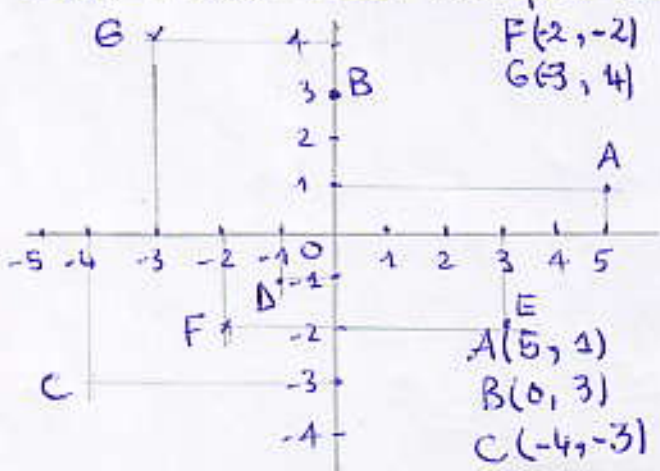 G
4
F(-2, -2)
3
B
G(-3, 4)
2
A
1
-5 -4 -3 -2 -1 0 1 2 3 4 5
D
-1
E
F
-2
A(5, 1)
C
-3
B(0, 3)
-4
C(-4, -3)